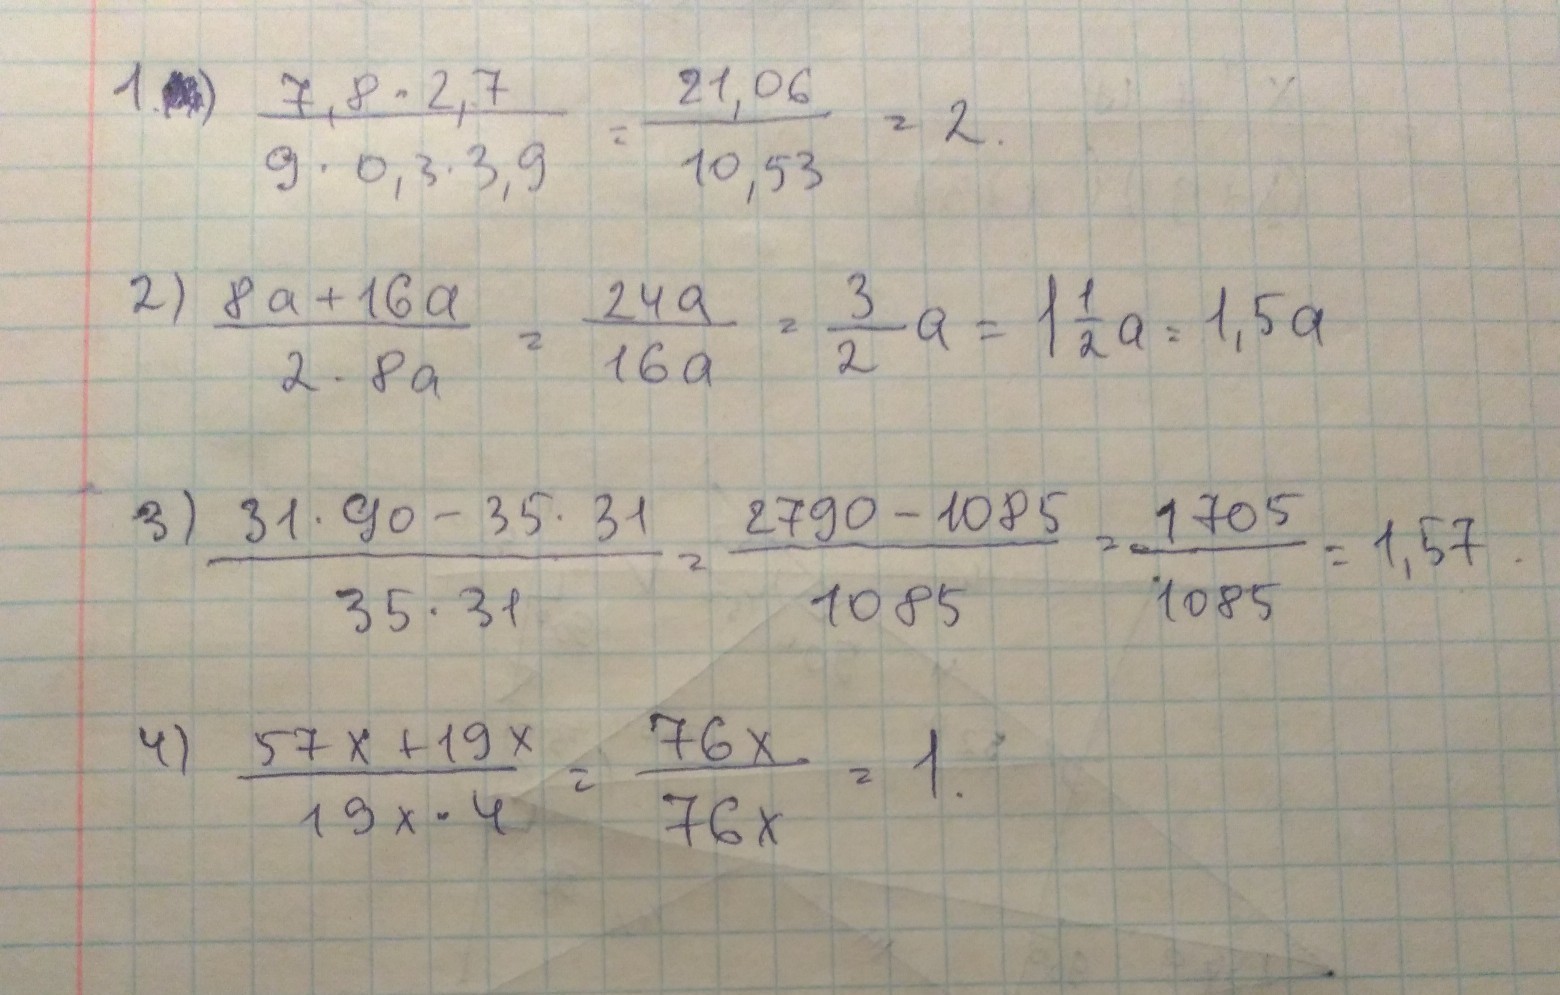 1. ) 7,8 · 2,7 / 9 · 0,3 · 3,9 = 21,06 / 10,53 = 2.
2) 8a + 16a / 2 · 8a = 24a / 16a = 3/2 a = 1 1/2 a = 1,5a
3) 31 · 90 - 35 · 31 / 35 · 31 = 2790 - 1085 / 1085 = 1705 / 1085 = 1,57.
4) 57x + 19x / 19x · 4 = 76x / 76x = 1.